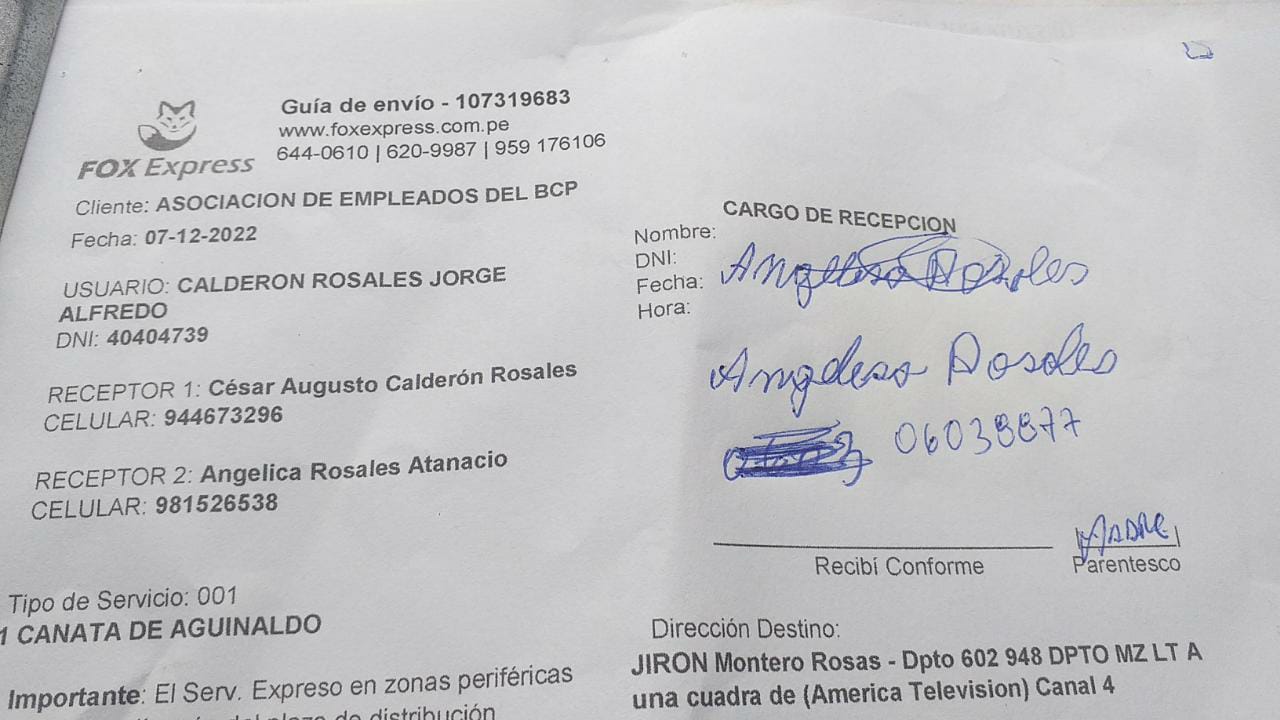 Guía de envío - 107319683
www.foxexpress.com.pe
644-0610 | 620-9987 | 959 176106
FOX Express
Cliente: ASOCIACION DE EMPLEADOS DEL BCP
Fecha: 07-12-2022
USUARIO: CALDERON ROSALES JORGE
ALFREDO
DNI: 40404739
RECEPTOR 1: César Augusto Calderón Rosales
CELULAR: 944673296
RECEPTOR 2: Angelica Rosales Atanacio
CELULAR: 981526538
Tipo de Servicio: 001
1 CANATA DE AGUINALDO
Importante: El Serv. Expreso en zonas periféricas
del plazo de distribución
CARGO DE RECEPCION
Nombre:
DNI:
Fecha:
Hora:
Rosales
06038877
MADRE
Recibí Conforme
Parentesco
Dirección Destino:
JIRON Montero Rosas - Dpto 602 948 DPTO MZ LT A
una cuadra de (America Television) Canal 4